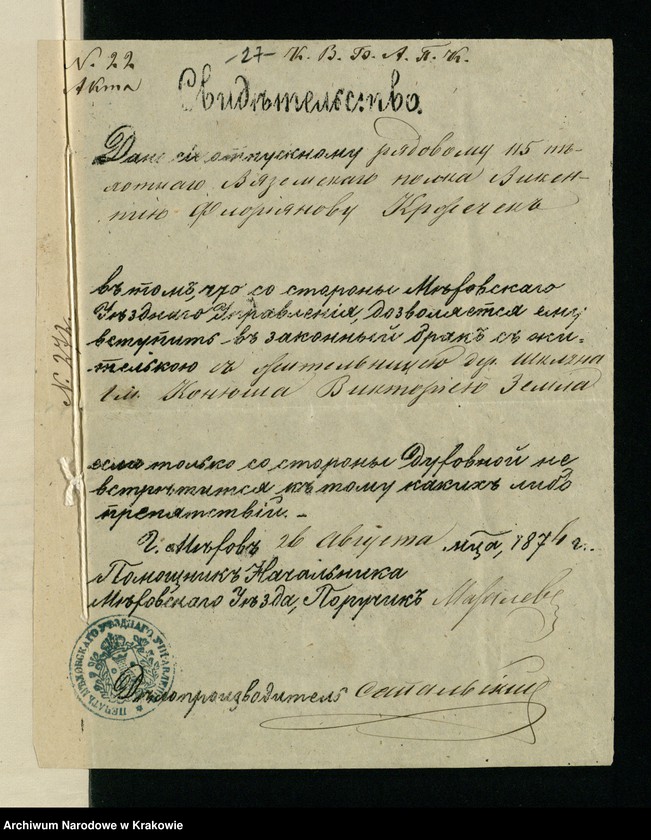 N. 22
Акта
-27- К. В. Г. А. П. К.
Свидѣтельство.
Дано сіе отпускному рядовому 115 пѣ-
хотнаго Вяземскаго полка Викен-
тію Флоріянову Крочекъ
въ томъ, что со стороны Мѣховскаго
Уѣзднаго Управленія, дозволяется ему
вступить въ законный бракъ съ жи-
телькою съ жительницею дер. Шкляна
гм. Конюша Викторіею Земла
если только со стороны Духовной не
встрѣтится къ тому какихъ либо
препятствій.
Г. Мѣховъ 26 Августа мца, 1876 г.
Помощникъ Начальника
Мѣховскаго Уѣзда, Поручикъ
Дѣлопроизводитель
N. 272.
ПЕЧАТЬ МѢХОВСКАГО УѢЗДНАГО УПРАВЛЕНІЯ
Archiwum Narodowe w Krakowie